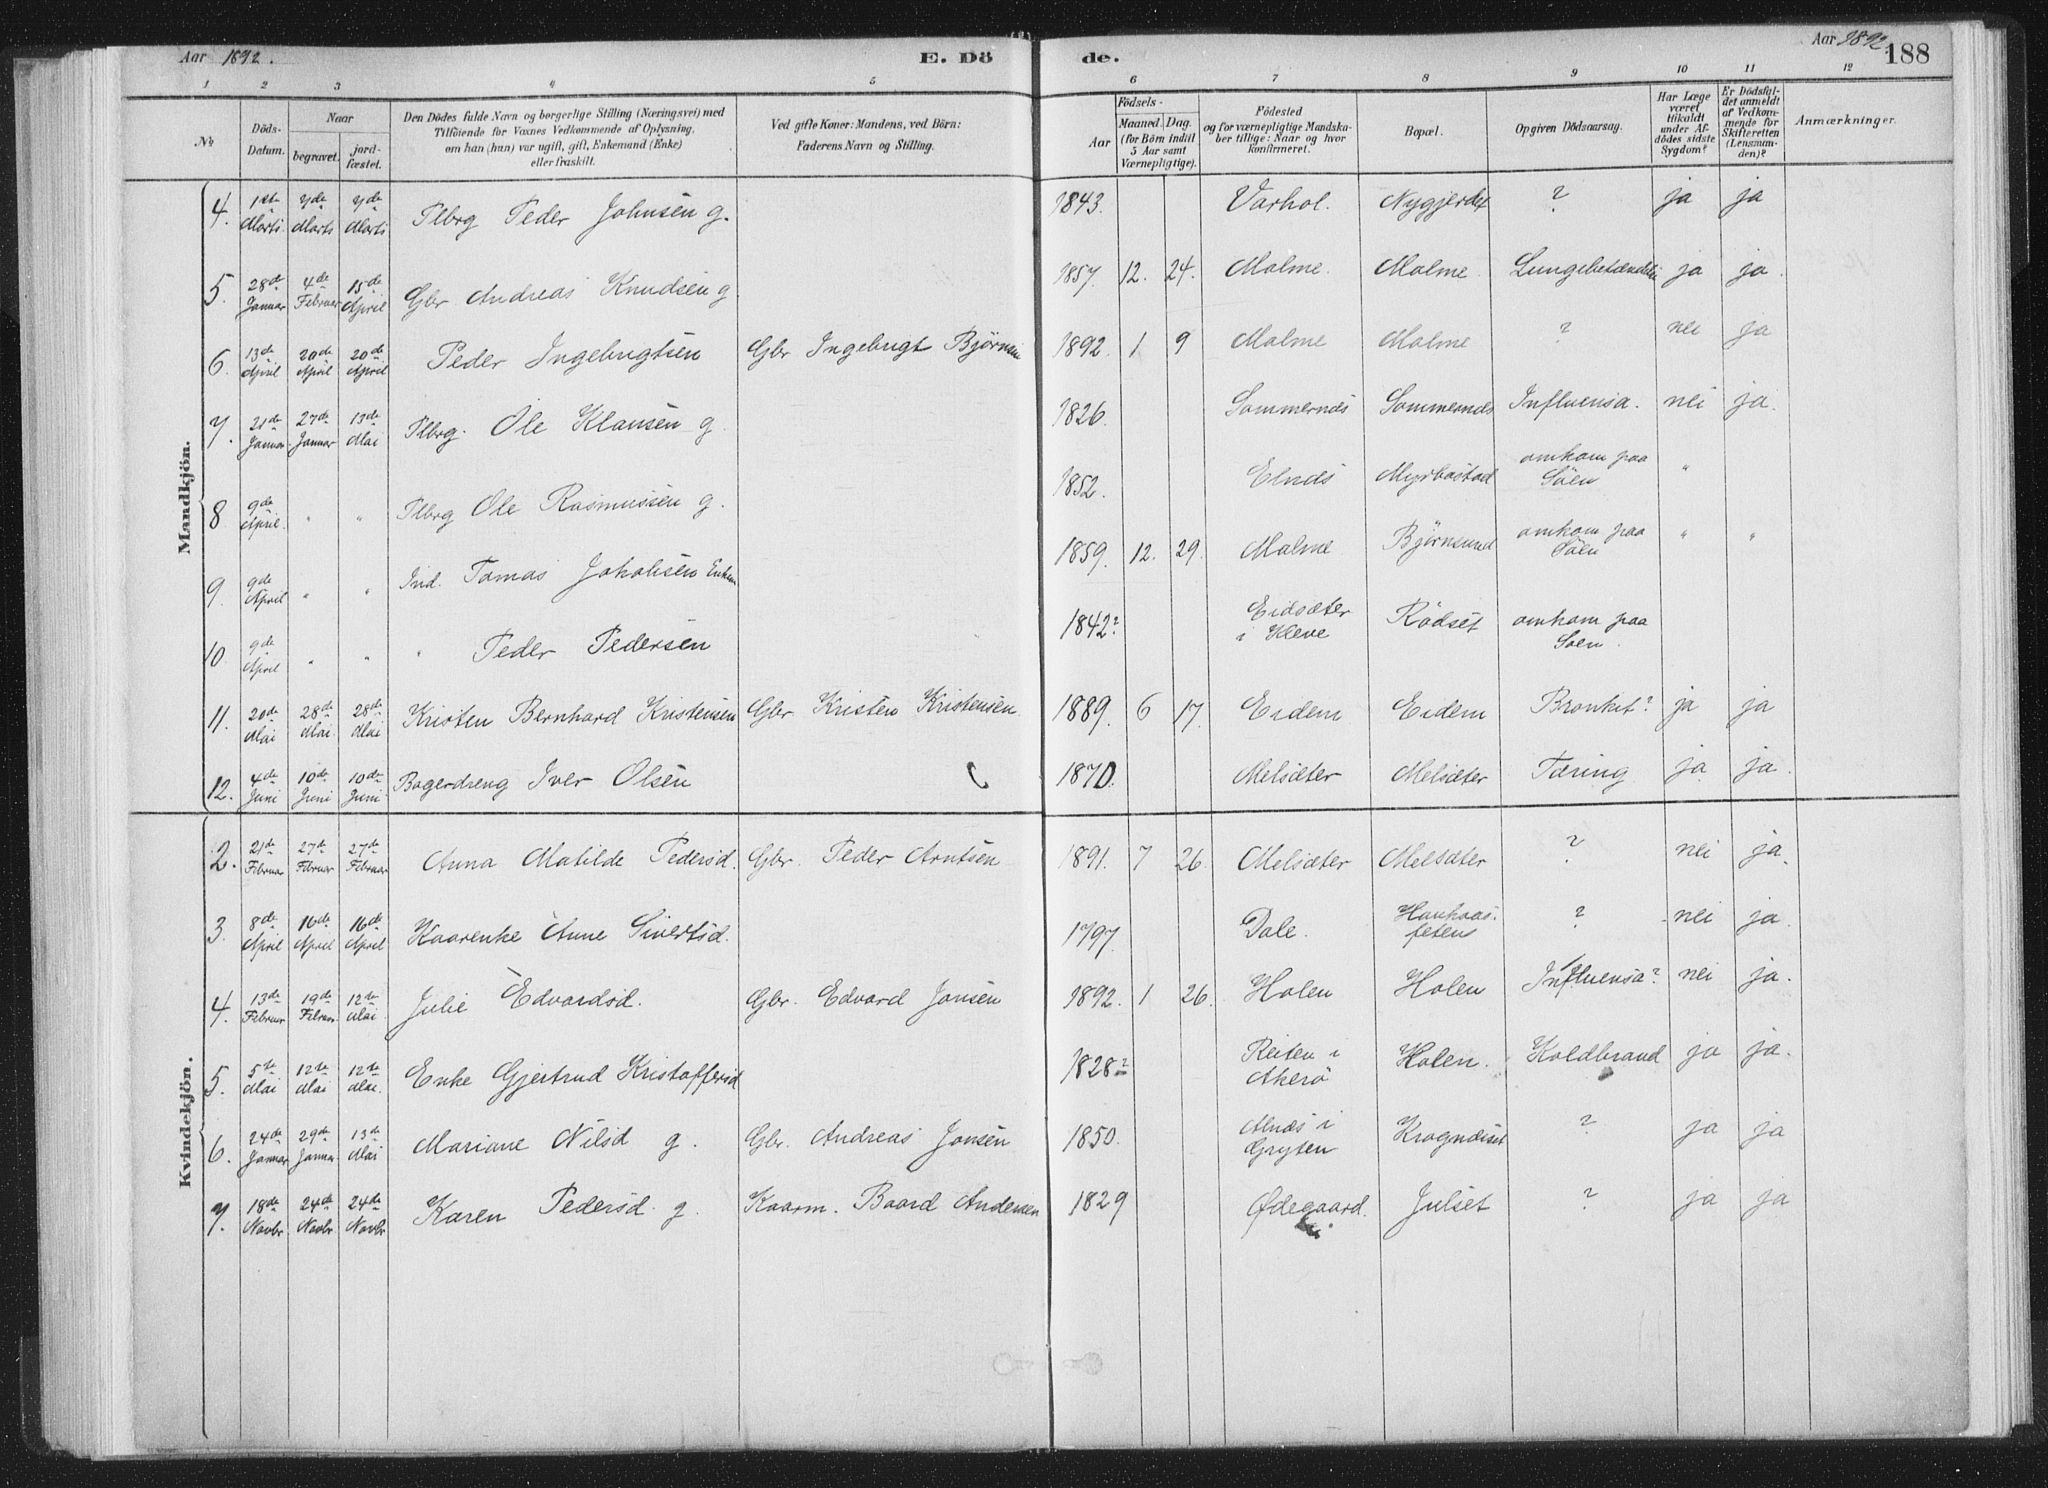 Aar 1892. E. Dö de. Aar 1892. 188
1 2 3 4 5 6 7 8 9 10 11 12
№ Döds-Datum. Naar begravet. jordfæstet. Den Dödes fulde Navn og borgerlige Stilling (Næringsvei) med Tilföiende for Voxnes Vedkommende af Oplysning, om han (hun) var ugift, gift, Enkemand (Enke) eller fraskilt. Ved gifte Koner: Mandens, ved Börn: Faderens Navn og Stilling. Födsels- Aar Maaned. Dag. (for Börn indtil 5 Aar samt Værnepligtige). Födested og for værnepligtige Mandskaber tillige: Naar og hvor konfirmeret. Bopæl. Opgiven Dödsaarsag. Har Læge været tilkaldt under Afdödes sidste Sygdom? Er Dödsfaldet anmeldt af Vedkommende for Skifteretten (Lensmanden)? Anmærkninger.
Mandkjön.
4. 1ste Marts 7de Marts 7de Marts Plbrg Peder Johnsen g. 1843. Varhol. Nygjerdet ? ja ja
5. 28de Januar 4de Februar 15de April Gbr Andreas Knudsen g 1857. 12. 24. Malme. Malme. Lungebetændelse ja ja.
6. 13de April 20de April 20de April Peder Ingebrigtsen Gbr Ingebrigt Bjørnsen 1892. 1 9 Malme Malme ? nei ja
7. 21de Januar 27de Januar 13de Mai Plbrg. Ole Klausen g. 1826. Sommernæs Sommernæs Influensa. nei ja.
8 9de April. " " Plbrg Ole Rasmussen g. 1852. Elnæs Myrbostad omkom paa Söen "
9. 9de April " " Ind. Tomas Jakobsen Enkem 1859. 12. 29. Malme Bjørnsund omkom paa Söen " "
10. 9de April " " " Peder Pedersen 1842? Eidsæter i Kleve Rödset omkom paa Söen.
11. 20de Mai 28de Mai 28de Mai Kristen Bernhard Kristensen Gbr Kristen Kristensen 1889. 6 17. Eidem Eidem Bronkit? ja ja
12. 4de Juni 10de Juni 10de Juni Bagerdreng Iver Olsen 1870. Melsæter Melsæter Tæring ja ja.
Kvindekjön.
2. 21de Februar 27de Februar 27de Februar Anna Matilde Pedersd. Gbr. Peder Arntsen 1891. 7 26. Melsæter Melsæter ? nei ja.
3. 8de April 16de April 16de April Kaarenke Anne Sivertsd. 1797. Dale. Haukaasfetens ? nei ja.
4. 13de Februar 19de Februar 12te Mai Julie Edvardsd. Gbr. Edvard Jonsen 1892. 1 26. Holen Holen Influensa? nei ja.
5. 5te Mai 12te Mai 12te Mai. Enke Gjertrud Kristoffersd 1828? Reiten i Akerö Holen. Koldbrand ja ja.
6. 24de Januar 29de Januar 13de Mai Mariane Nilsd g. Gbr. Andreas Jonsen 1850. Alnæs i Gryten Kragnæset ? ja ja
7. 18de Novbr 24de Novbr 24de Novbr Karen Pedersd. g. Kaarm. Baard Andersen 1829 Ødegaard. Julset ? ja ja